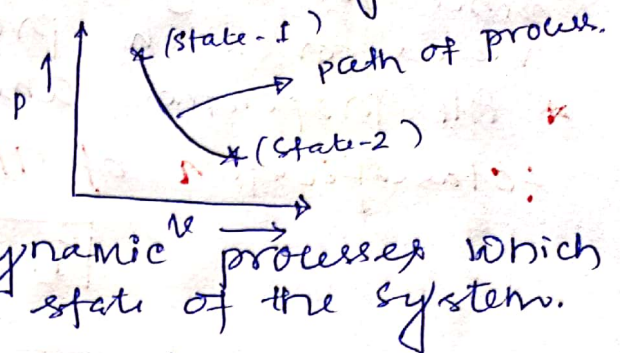 (State-1)
path of process.
P
(State-2)
v
ynamic processes which
state of the system.